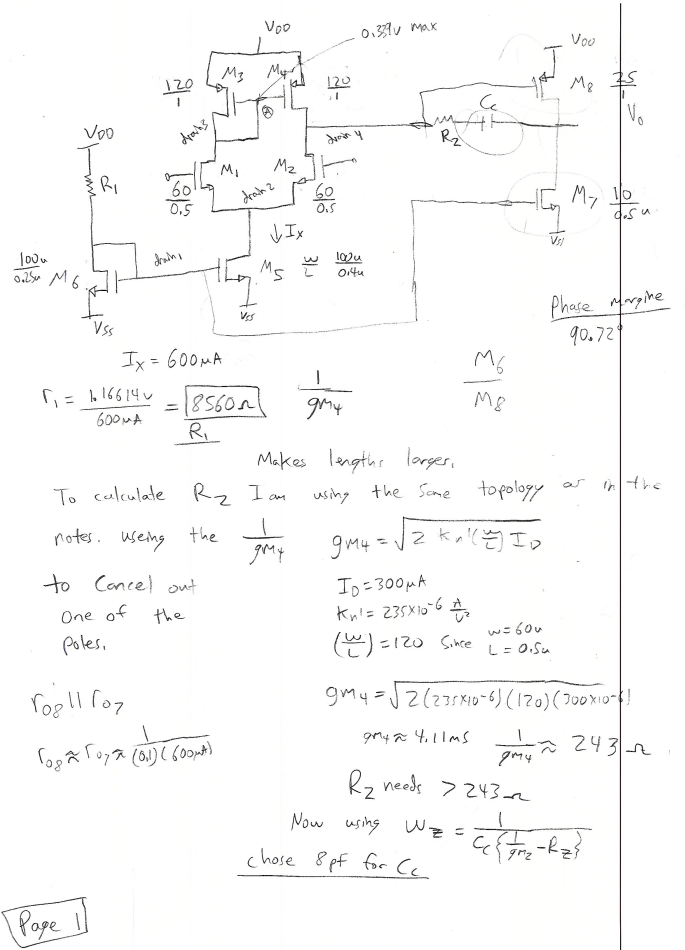 VDD
0.339v max
M3
M4
120
1
120
1
A
VDD
M8
25
1
Vo
Cc
RZ
drain3
drain4
VDD
R1
M1
M2
60
0.5
drain2
60
0.5
M7
10
0.5u
Vss
↓ Ix
100u
0.25u
M6
drain1
M5
W
L
100u
0.4u
Vss
Vss
Phase margine
90.72°
Ix = 600μA
r1 = 1.16614v / 600μA = 8560Ω
R1
1 / gm4
M6 / M8
Makes lengths larger.
To calculate RZ I am using the same topology as in the
notes. useing the 1/gm4 gm4 = √2 Kn'(W/L) ID
to Cancel out
one of the
Poles.
ID = 300μA
Kn' = 235x10-6 A/V²
(W/L) = 120 Since w=60u L=0.5u
ro8 || ro7
ro8 ≈ ro7 ≈ 1/(0.1)(600μA)
gm4 = √2(235x10-6)(120)(300x10-6)
gm4 ≈ 4.11ms 1/gm4 ≈ 243Ω
RZ needs > 243Ω
Now using WZ = 1/Cc{1/gm2 - RZ}
chose 8pf for Cc
Page 1